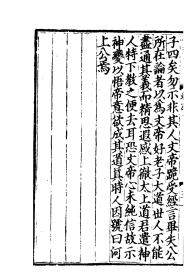 子四矣勿示非其人文帝跪受經言畢失公
所在論者以為文帝好老子大道世人不能
盡通其義而精思遐感上徹太上道君遣神
人特下教之便去耳恐文帝心未純信故示
神變以悟帝意欲成其道真時人因號曰河
上公焉